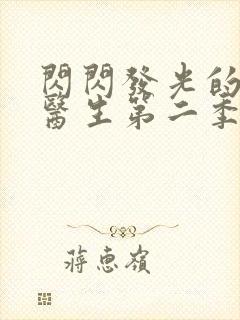 閃閃發光的
醫生第二季
蔣惠嶺